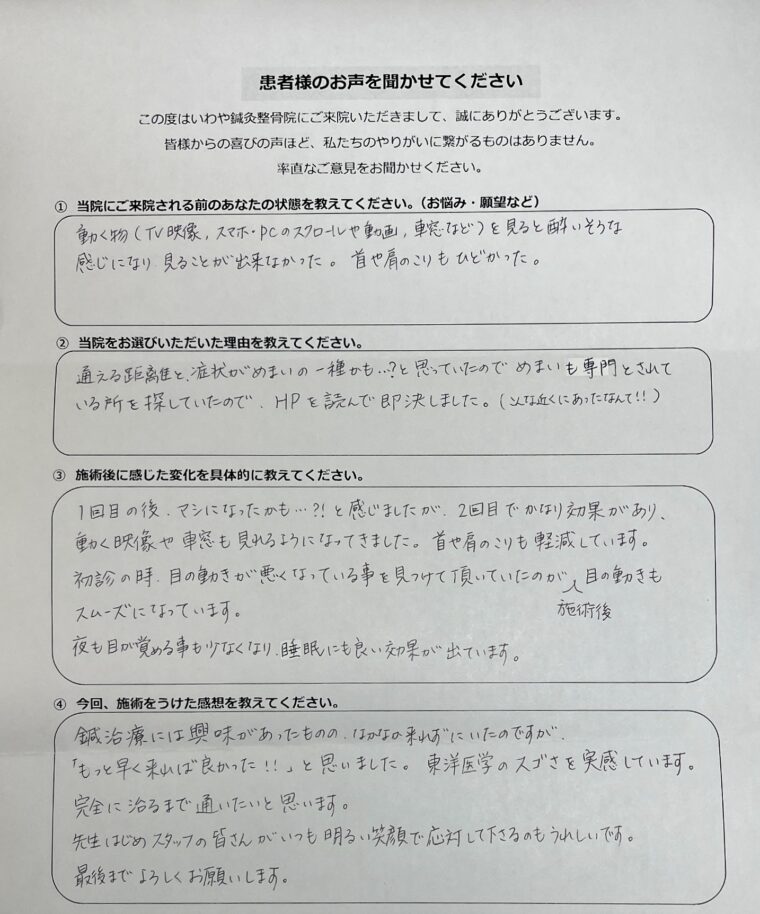 患者様のお声を聞かせてください
この度はいわや鍼灸整骨院にご来院いただきまして、誠にありがとうございます。
皆様からの喜びの声ほど、私たちのやりがいに繋がるものはありません。
率直なご意見をお聞かせください。
① 当院にご来院される前のあなたの状態を教えてください。（お悩み・願望など）
動く物（TV映像，スマホ・PCのスクロールや動画，車窓など）を見ると酔いそうな
感じになり、見ることが出来なかった。首や肩のこりもひどかった。
② 当院をお選びいただいた理由を教えてください。
通える距離と、症状がめまいの一種かも…?と思っていたのでめまいも専門とされて
いる所を探していたので、HPを読んで即決しました。（こんな近くにあったなんて!!）
③ 施術後に感じた変化を具体的に教えてください。
1回目の後、マシになったかも…?!と感じましたが、2回目でかなり効果があり、
動く映像や車窓も見れるようになってきました。首や肩のこりも軽減しています。
初診の時、目の動きが悪くなっている事を見つけて頂いていたのが、目の動きも
施術後
スムーズになっています。
夜も目が覚める事も少なくなり、睡眠にも良い効果が出ています。
④ 今回、施術をうけた感想を教えてください。
鍼治療には興味があったものの、なかなか来れずにいたのですが、
「もっと早く来れば良かった!!」と思いました。東洋医学のスゴさを実感しています。
完全に治るまで通いたいと思います。
先生はじめスタッフの皆さんがいつも明るい笑顔で応対して下さるのもうれしいです。
最後までよろしくお願いします。